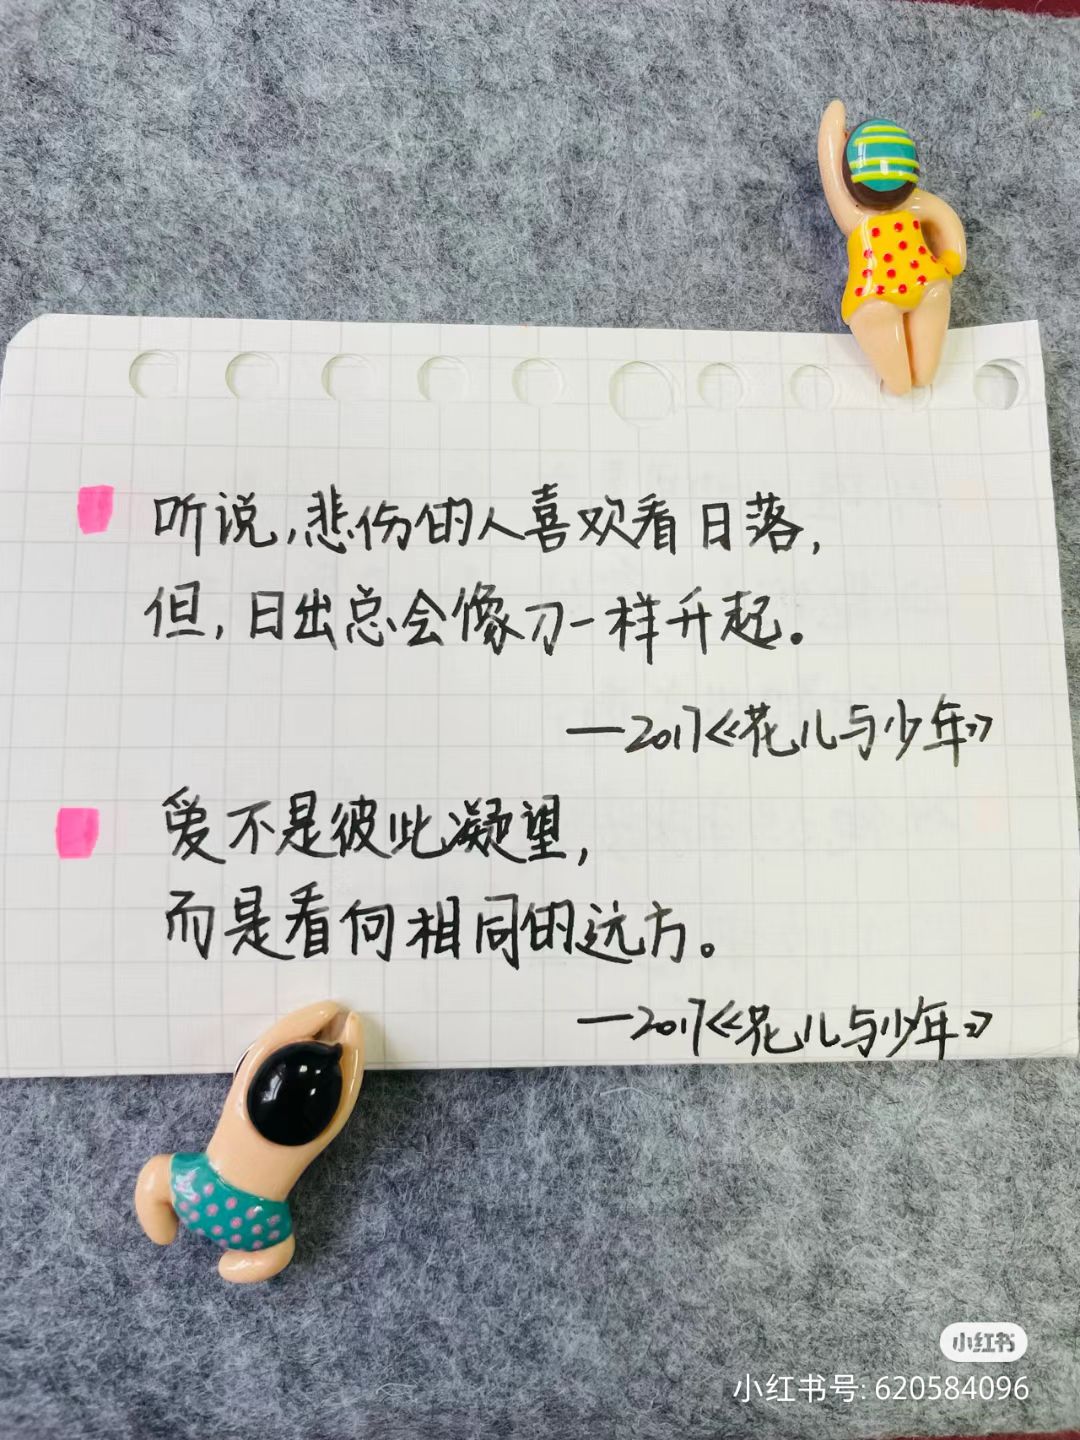 听说,悲伤的人喜欢看日落,
但,日出总会像刀一样升起。
—2017《花儿与少年》
爱不是彼此凝望,
而是看向相同的远方。
—2017《花儿与少年》
小红书
小红书号: 620584096